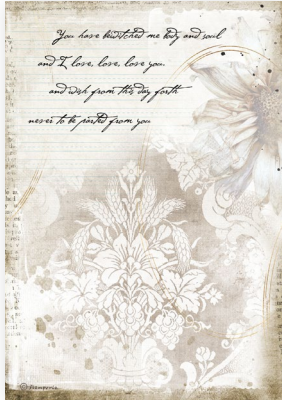 You have bewitched me body and soul
and I love, love, love you.
and wish from this day forth
never to be parted from you
© Stamperia